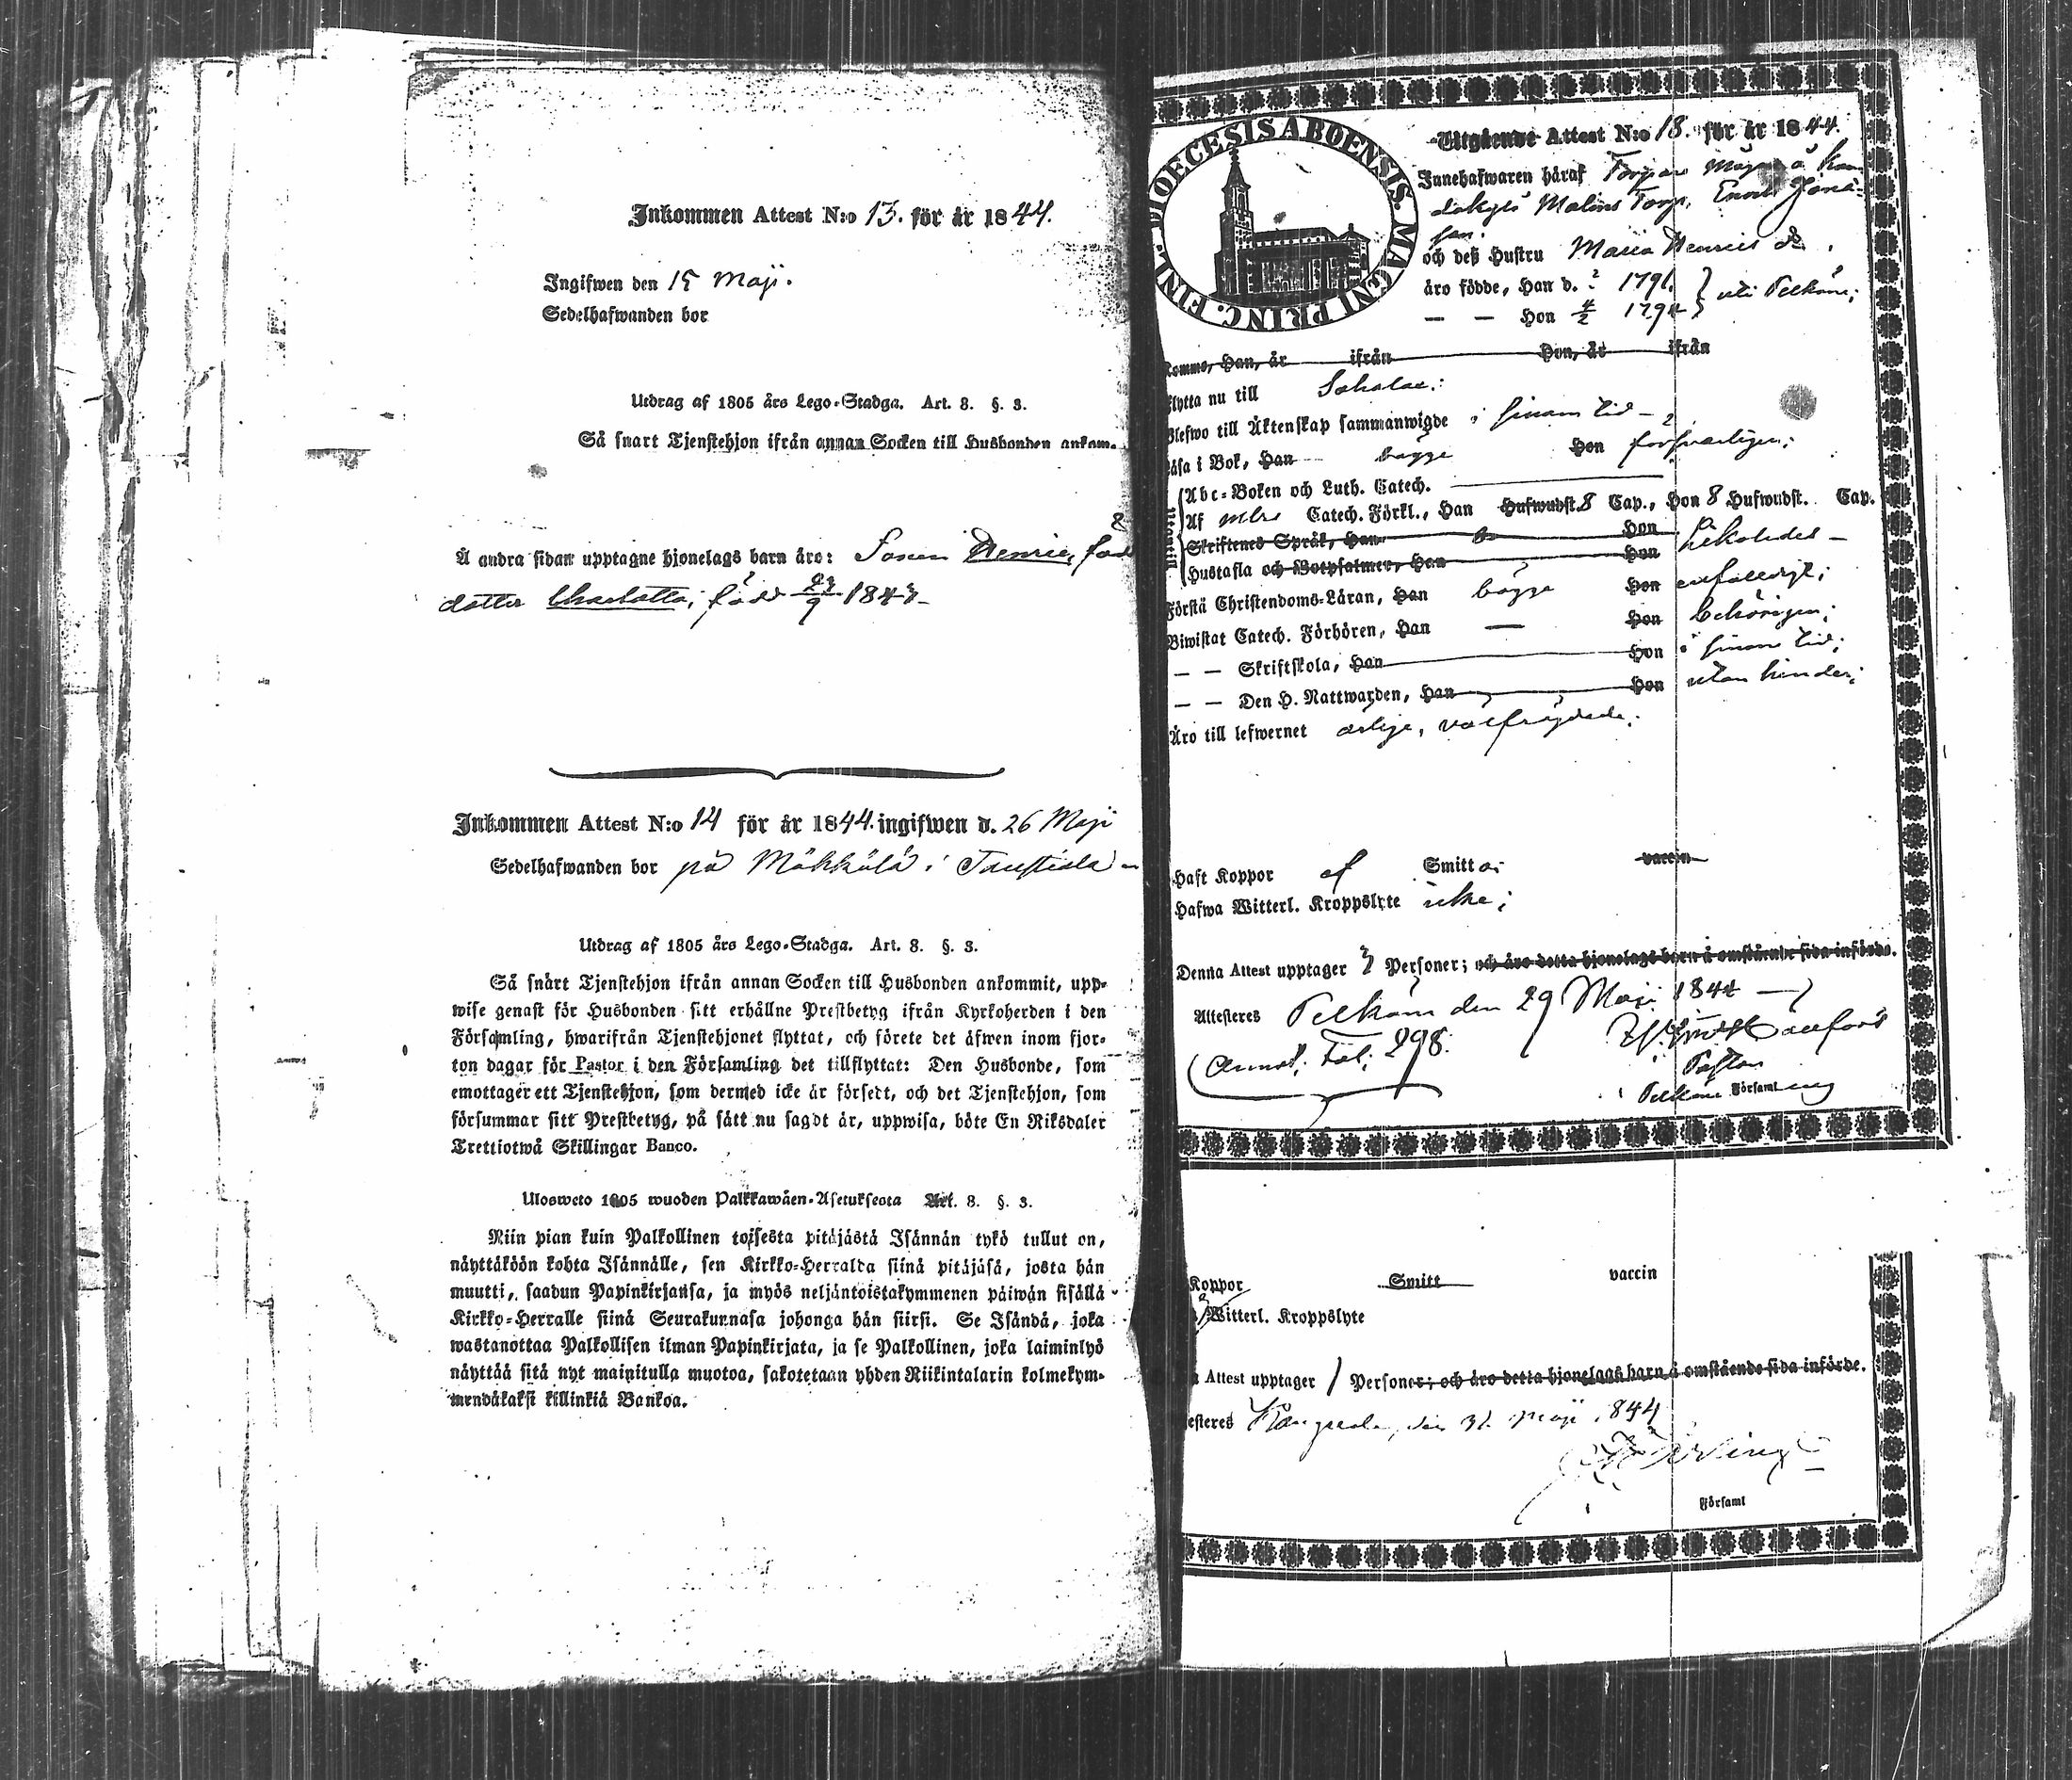 Inkommen Attest N:o 13. för år 1844.
Ingifwen den 15 Maji.
Sedelhafwanden bor
Utdrag af 1805 års Lego-Stadga. Art. 8. §. 3.
Så snart Tjenstehjon ifrån annan Socken till Husbonden ankom-
Å andra sidan upptagne hjonelags barn äro: Sonen Henric, född
dotter Charlotta, född 1843
Inkommen Attest N:o 14 för år 1844. ingifwen d. 26 Maji
Sedelhafwanden bor på Mökkölä i
Utdrag af 1805 års Lego-Stadga. Art. 8. §. 3.
Så snart Tjenstehjon ifrån annan Socken till Husbonden ankommit, upp-
wise genast för Husbonden sitt erhållne Prestbetyg ifrån Kyrkoherden i den
Församling, hwarifrån Tjenstehjonet flyttat, och förete det äfwen inom fjor-
ton dagar för Pastor i den Församling det tillflyttat: Den Husbonde, som
emottager ett Tjenstehjon, som dermed icke är försedt, och det Tjenstehjon, som
försummar sitt Prestbetyg, på sätt nu sagdt är, uppwisa, böte En Riksdaler
Trettiotwå Skillingar Banco.
Ulosweto 1805 wuoden Palkkawäen-Asetuksesta Art. 8. §. 3.
Niin pian kuin Palkollinen toisesta pitäjästä Isännän tykö tullut on,
näyttäköön kohta Isännälle, sen Kirkko-Herralda siinä pitäjäsä, josta hän
muutti, saadun Papinkirjansa, ja myös neljäntoistakymmenen päiwän sisällä
Kirkko-Herralle siinä Seurakunnasa johonga hän siirsi. Se Isändä, joka
wastanottaa Palkollisen ilman Papinkirjata, ja se Palkollinen, joka laiminlyö
näyttää sitä nyt mainitulla muotoa, sakotetaan yhden Riikintalarin kolmekym-
mendäkaksi killinkiä Bankoa.
DIOECESIS ABOENSIS. MAGNI PRINC. FINL.
Utgående Attest N:o 18. för år 1844.
Innehafwaren häraf Torpare
Torp, Enoch
son.
och deß Hustru Maria Henrics dr,
äro födde, Han d. 1791. uti Pelkäne;
— — Hon 1794
Komne, Han, år ifrån Hon, år ifrån
flytta nu till Sahalax:
Blefwo till Äktenskap sammanwigde i sinom tid —
läsa i Bok, Han bägge Hon försvarligen;
Abc-Boken och Luth. Catech.
Af Catech. Förkl., Han Hufwudst. 8 Cap., Hon 8 Hufwudst. Cap.
Skriftenes Språk, Han Hon likaledes —
Hustafla och Botpsalmer, Han Hon
Förstå Christendoms-Läran, Han bägge Hon enfaldigt;
Biwistat Catech. Förhören, Han — Hon behörigen;
— — Skriftskola, Han Hon i sinom tid;
— — Den H. Nattwarden, Han Hon utan hinder;
Äro till lefwernet ärlige, välfrägdade.
Haft Koppor af Smitto: vaccin
Hafwa Witterl. Kroppslyte icke;
Denna Attest upptager 2 Personer; och äro detta hjonelags barn å omstående sida införde.
Attesteres Pelkäne den 29 Maji 1844
Annot. Fol. 298.
Pastor
i Pelkäne Församling
Koppor Smitt vaccin
Witterl. Kroppslyte
Attest upptager 1 Personer; och äro detta hjonelags barn å omstående sida införde.
esteres Kangasala, den 31 Maji 1844
Församl